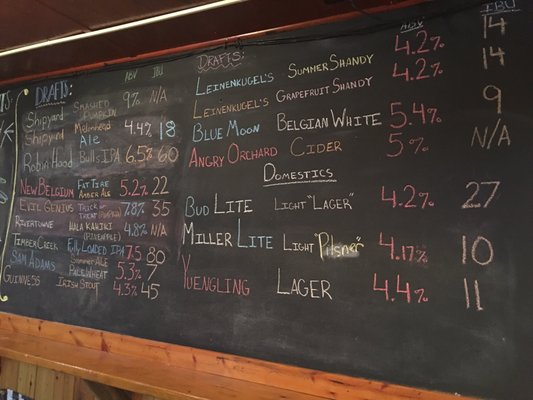 ABV IBU
DRAFTS:
Shipyard SMASHED PUMPKIN 9% N/A
Shipyard Melonhead Ale 4.4% 18
Robin Hood Bulls IPA 6.5% 60
NEW BELGIUM FAT TIRE AMBER ALE 5.2% 22
EVIL GENIUS TRICK OR TREAT (PUMPKIN) 7.8% 35
RIVERTOWNE HALA KAHIKI (PINEAPPLE) 4.8% N/A
TIMBER CREEK FULLY LOADED IPA 7.5 80
SAM ADAMS SUMMER ALE PALE WHEAT 5.3% 7
GUINNESS IRISH STOUT 4.3% 45
ABV IBU
DRAFTS:
LEINENKUGEL'S SUMMER SHANDY 4.2% 14
LEINENKUGEL'S GRAPEFRUIT SHANDY 4.2% 14
BLUE MOON BELGIAN WHITE 5.4% 9
ANGRY ORCHARD CIDER 5% N/A
DOMESTICS
BUD LITE LIGHT "LAGER" 4.2% 27
MILLER LITE LIGHT "Pilsner" 4.17% 10
YUENGLING LAGER 4.4% 11